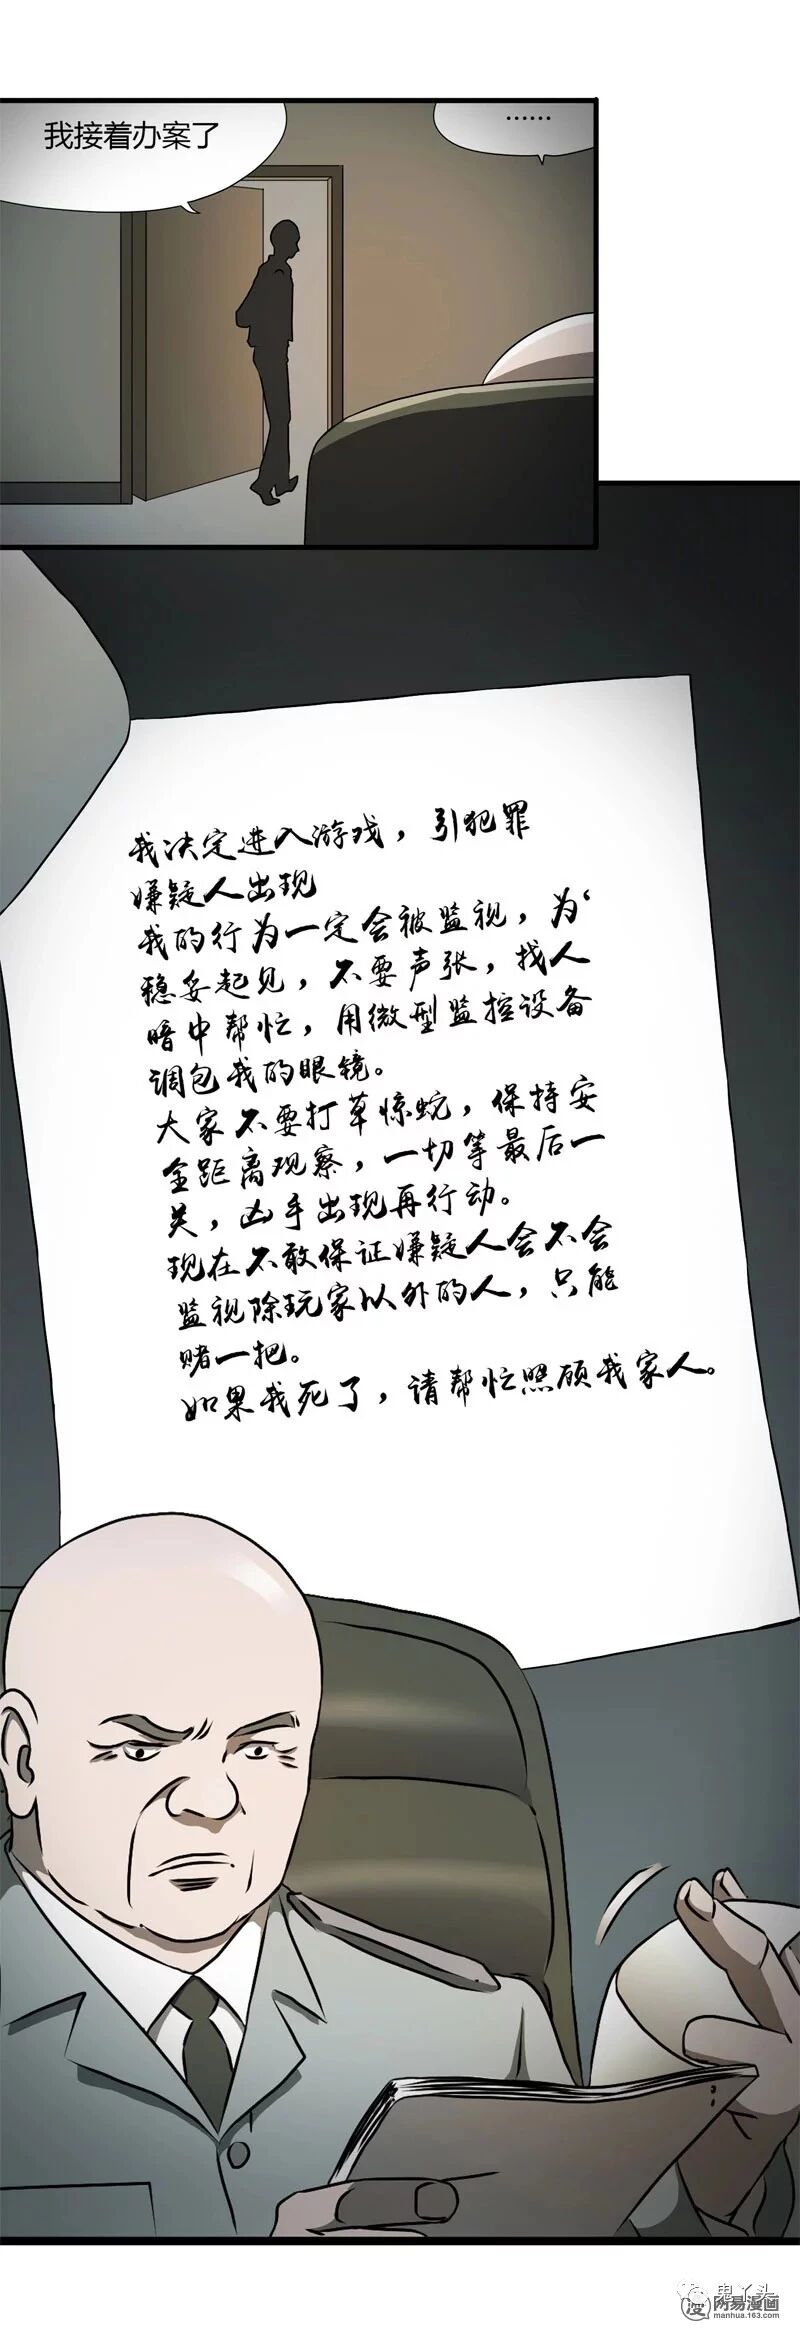 我接着办案了
······
我决定进入游戏，引犯罪
嫌疑人出现
我的行为一定会被监视，为
稳妥起见，不要声张，找人
暗中帮忙，用微型监控设备
调包我的眼镜。
大家不要打草惊蛇，保持安
全距离观察，一切等最后一
关，凶手出现再行动。
现在不敢保证嫌疑人会不会
监视除玩家以外的人，只能
赌一把。
如果我死了，请帮忙照顾我家人。
鬼丫头
网易漫画
manhua.163.com